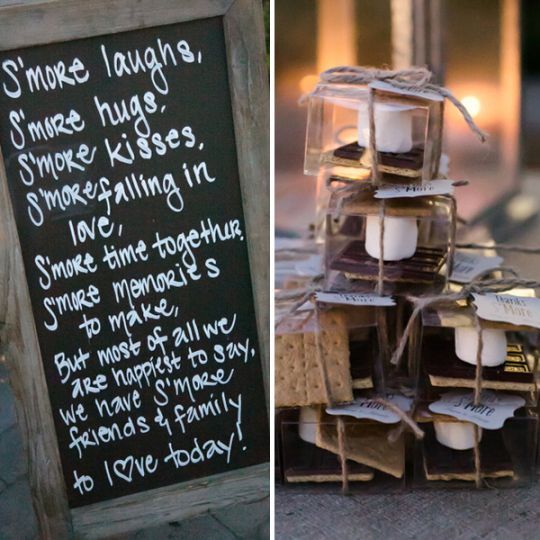 S'more laughs,
S'more hugs,
S'more kisses,
S'more falling in
love,
S'more time together,
S'more memories
to make,
But most of all we
are happiest to say,
we have S'more
friends & family
to l♥ve today!
Thanks
S'More
S'More